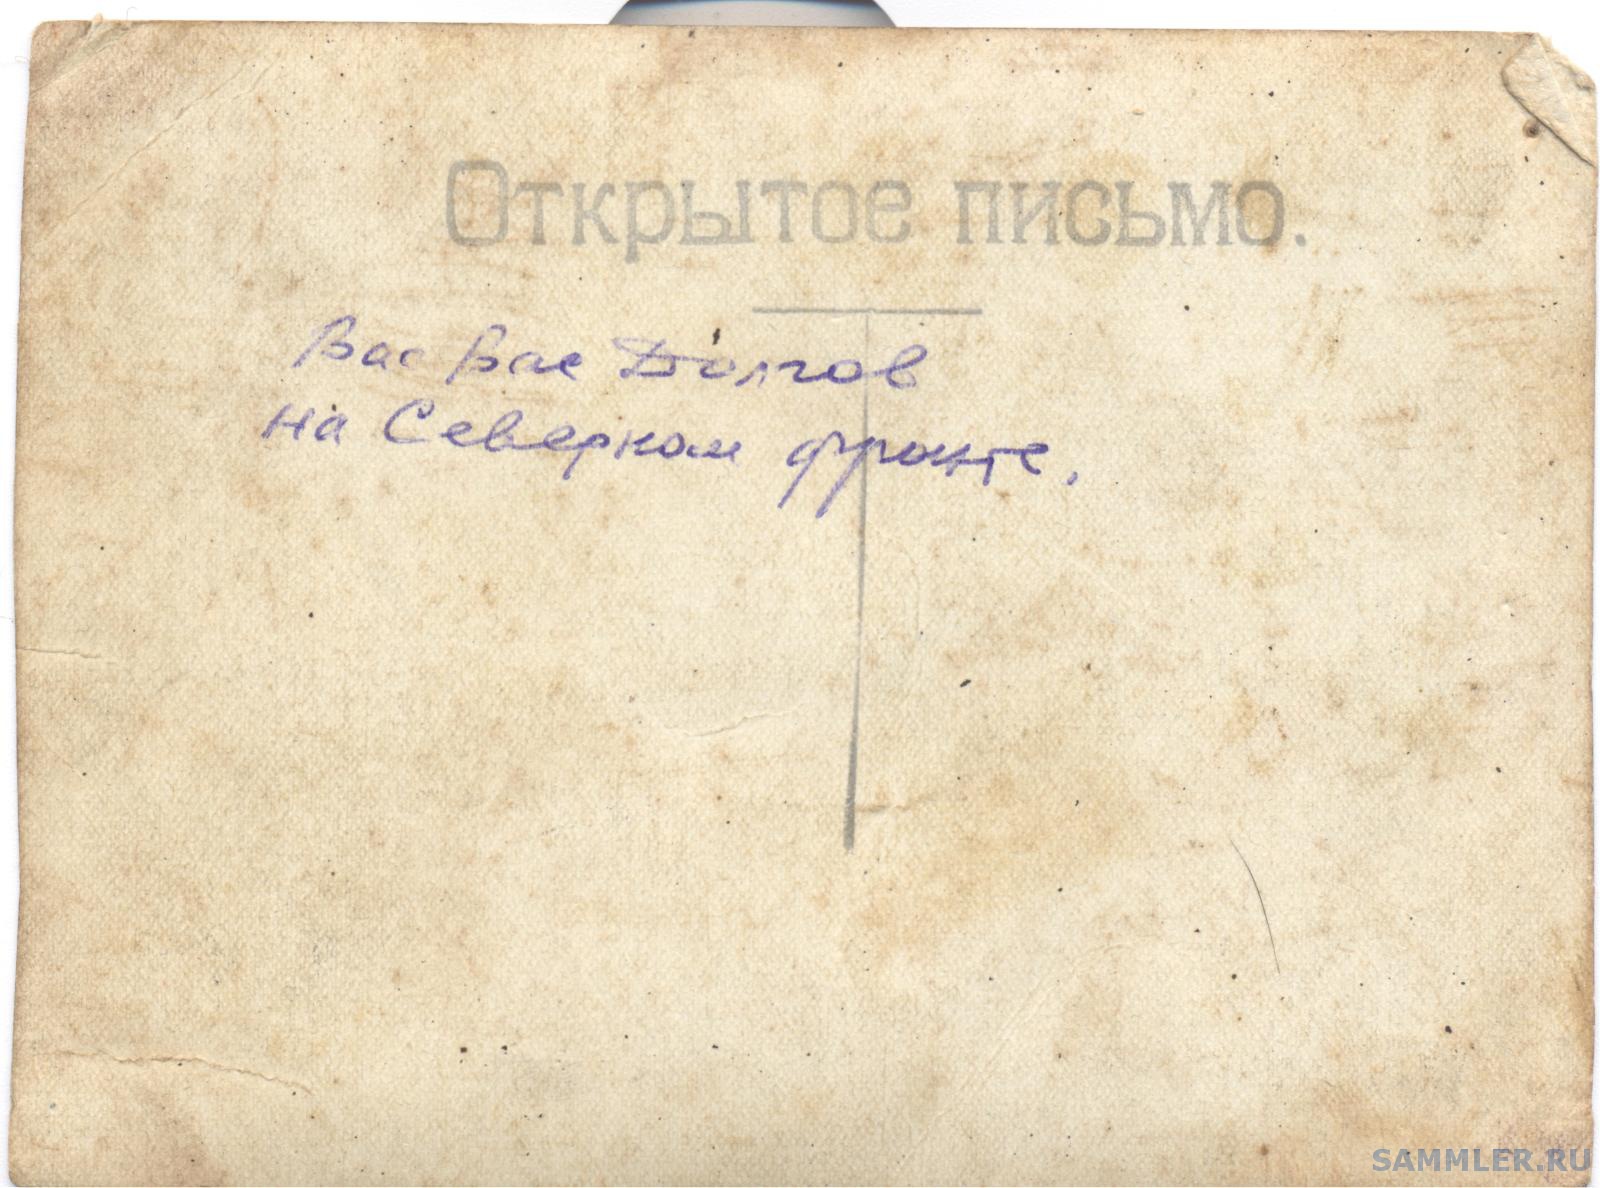 Открытое письмо.
Вас Вас Долгов
на Северном фронте.
SAMMLER.RU